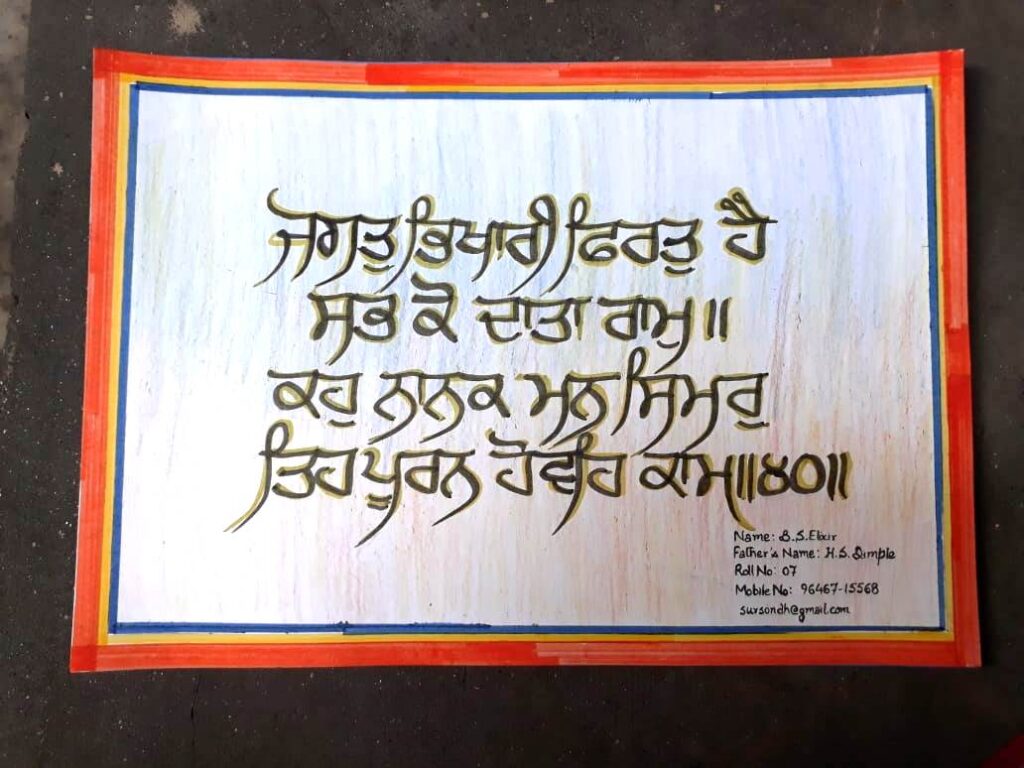 ਜਗਤੁ ਭਿਖਾਰੀ ਫਿਰਤੁ ਹੈ
ਸਭ ਕੋ ਦਾਤਾ ਰਾਮੁ॥
ਕਹੁ ਨਾਨਕ ਮਨ ਸਿਮਰੁ
ਤਿਹ ਪੂਰਨ ਹੋਵਹਿ ਕਾਮ॥੪੦॥
Name: B.S.Elixir
Father's Name: H.S. Dimple
Roll No: 07
Mobile No: 96467-15568
sursondh@gmail.com